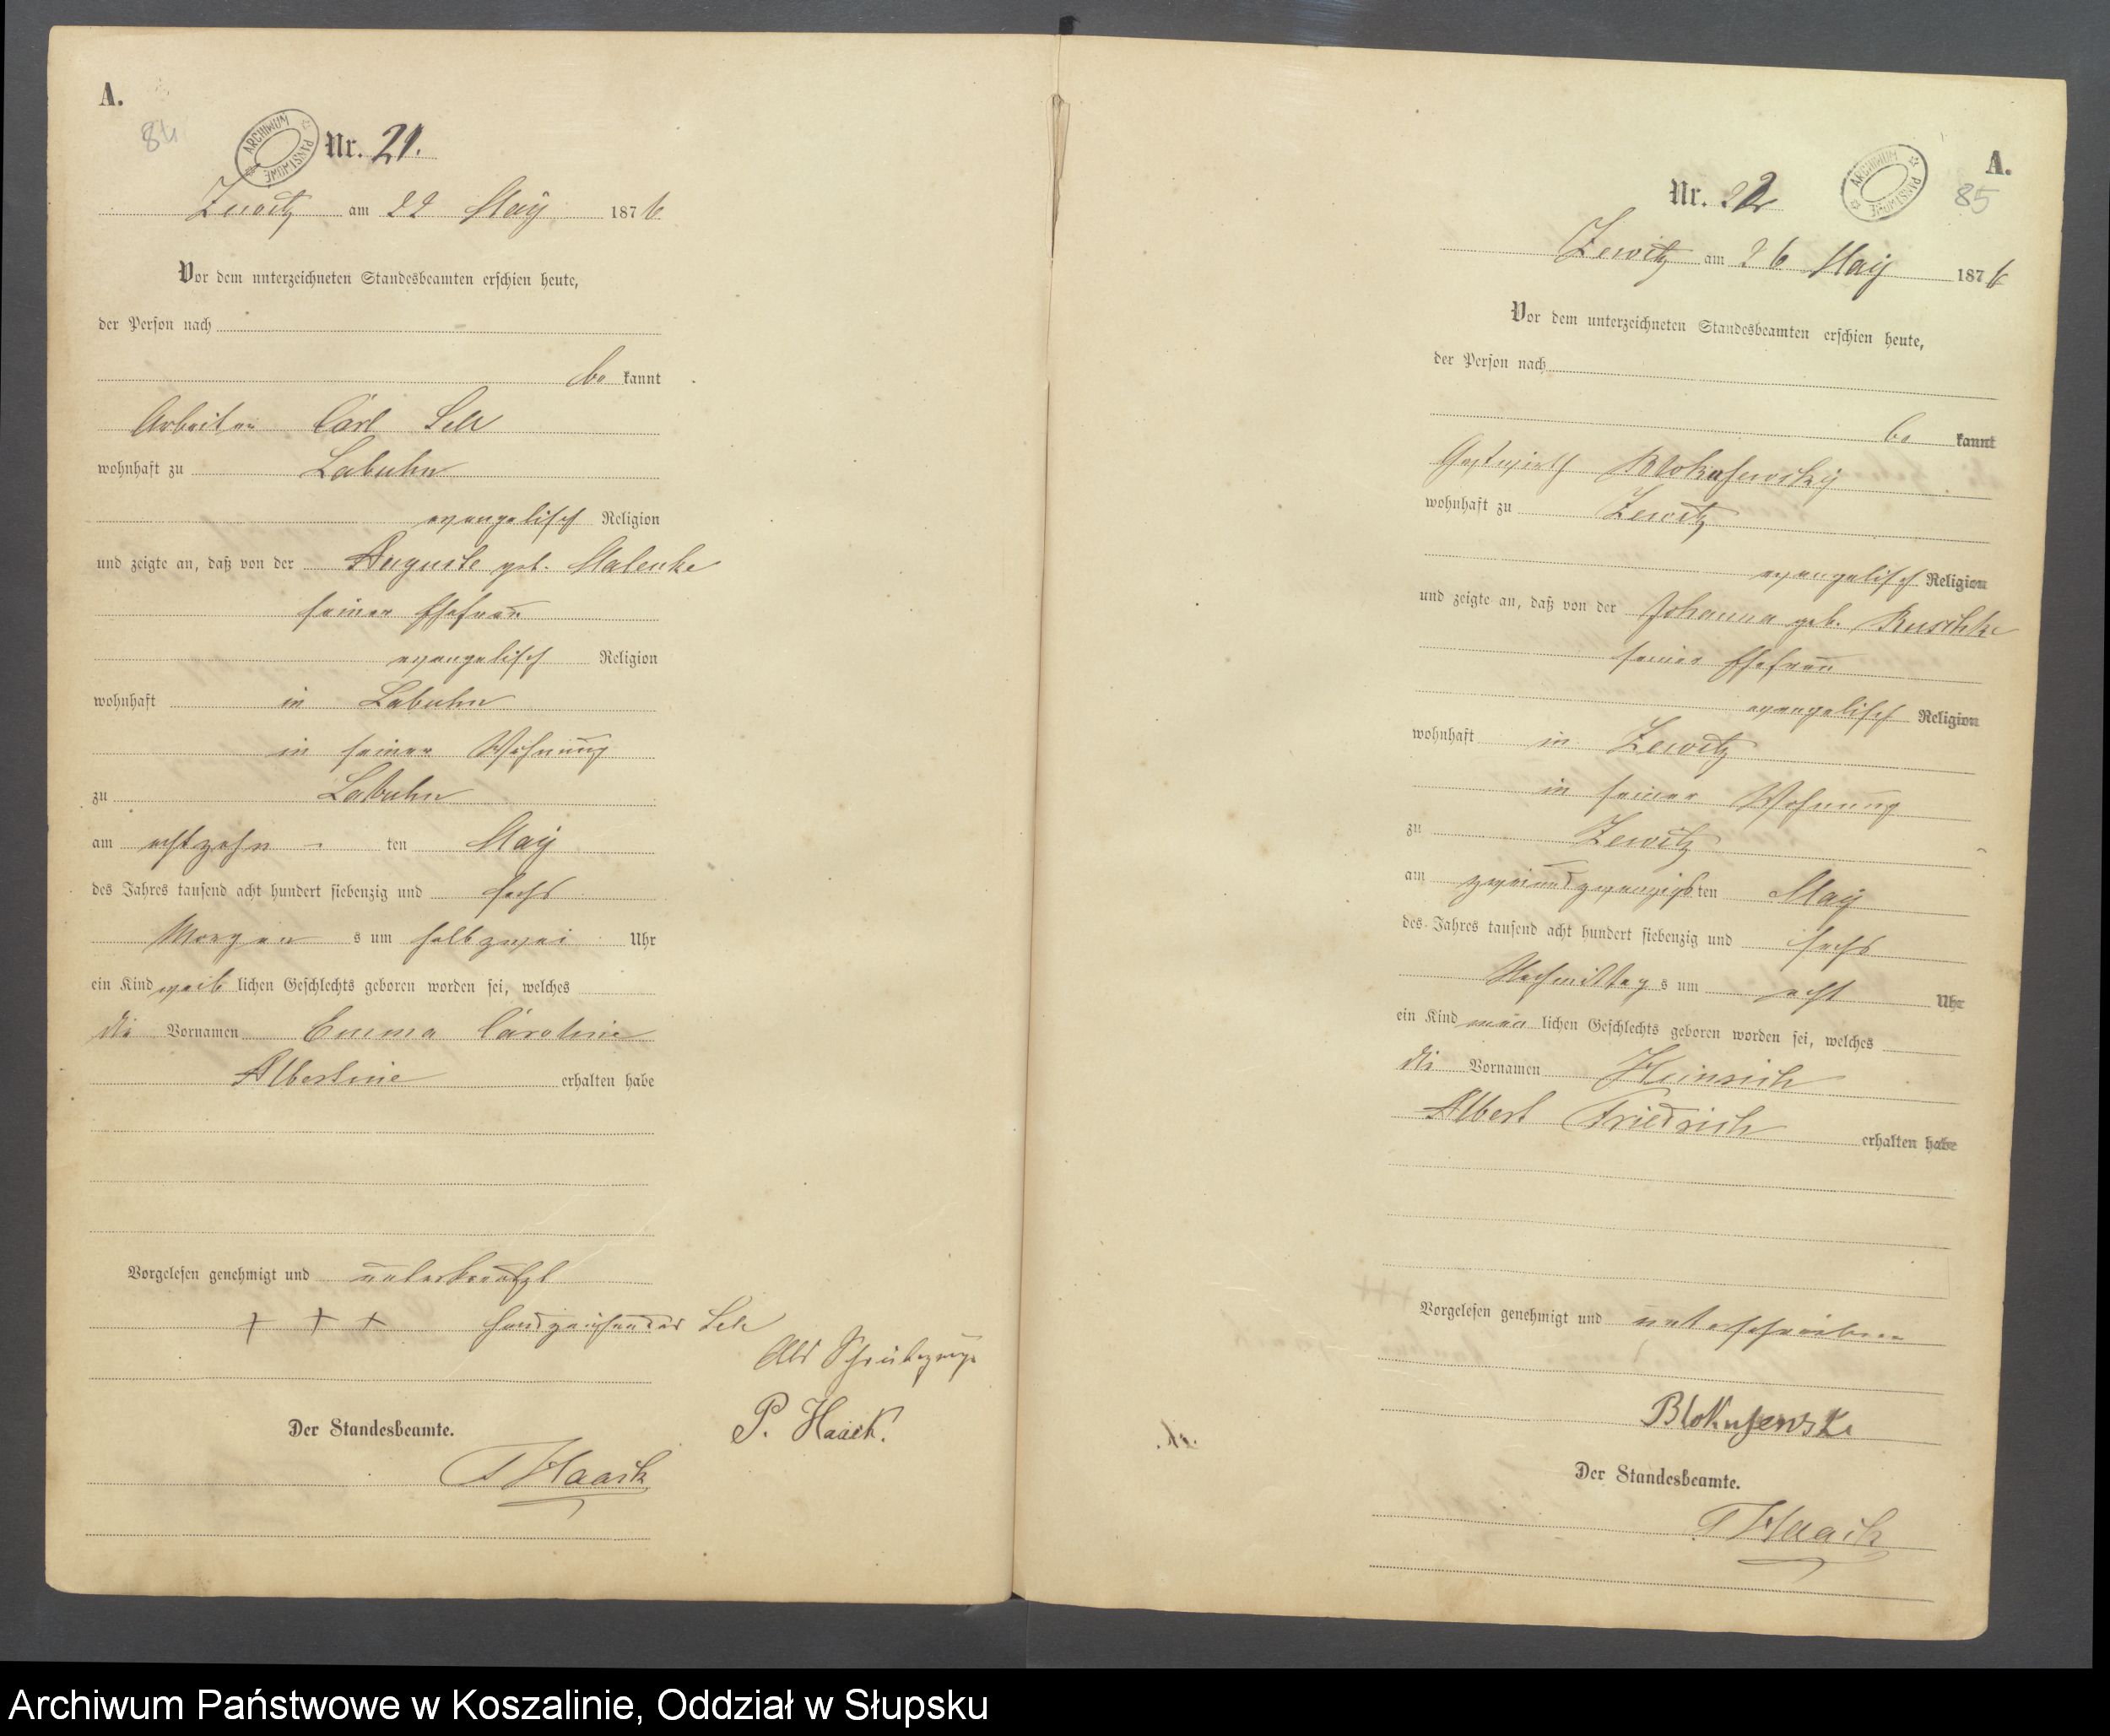 A.
84
ARCHIWUM PAŃSTWOWE
Nr. 21.
Zewitz am 22 May 1876
Vor dem unterzeichneten Standesbeamten erschien heute,
der Person nach
be kannt
Arbeiter Carl
wohnhaft zu Labuhn
evangelisch Religion
und zeigte an, daß von der Auguste geb. Malenke
seiner Ehefrau
evangelisch Religion
wohnhaft in Labuhn
in seiner Wohnung
zu Labuhn
am achtzehn ten May
des Jahres tausend acht hundert siebenzig und sechs
Morgen s um halb zwei Uhr
ein Kind weib lichen Geschlechts geboren worden sei, welches
die Vornamen Emma Caroline
Albertine erhalten habe
Vorgelesen genehmigt und unterkreuzt
+ + + Handzeichen des
Als Schreibzeuge
P. Haack.
Der Standesbeamte.
Haack
A.
85
ARCHIWUM PAŃSTWOWE
Nr. 22
Zewitz am 26 May 1876
Vor dem unterzeichneten Standesbeamten erschien heute,
der Person nach
be kannt
Gastwirth
wohnhaft zu Zewitz
evangelisch Religion
und zeigte an, daß von der Johanna geb. Ruschke
seiner Ehefrau
evangelisch Religion
wohnhaft in Zewitz
in seiner Wohnung
zu Zewitz
am zweiundzwanzigsten May
des Jahres tausend acht hundert siebenzig und sechs
Nachmittag s um acht Uhr
ein Kind män lichen Geschlechts geboren worden sei, welches
die Vornamen Heinrich
Albert Friedrich erhalten habe
Vorgelesen genehmigt und unterschrieben
Der Standesbeamte.
Haack
Archiwum Państwowe w Koszalinie, Oddział w Słupsku